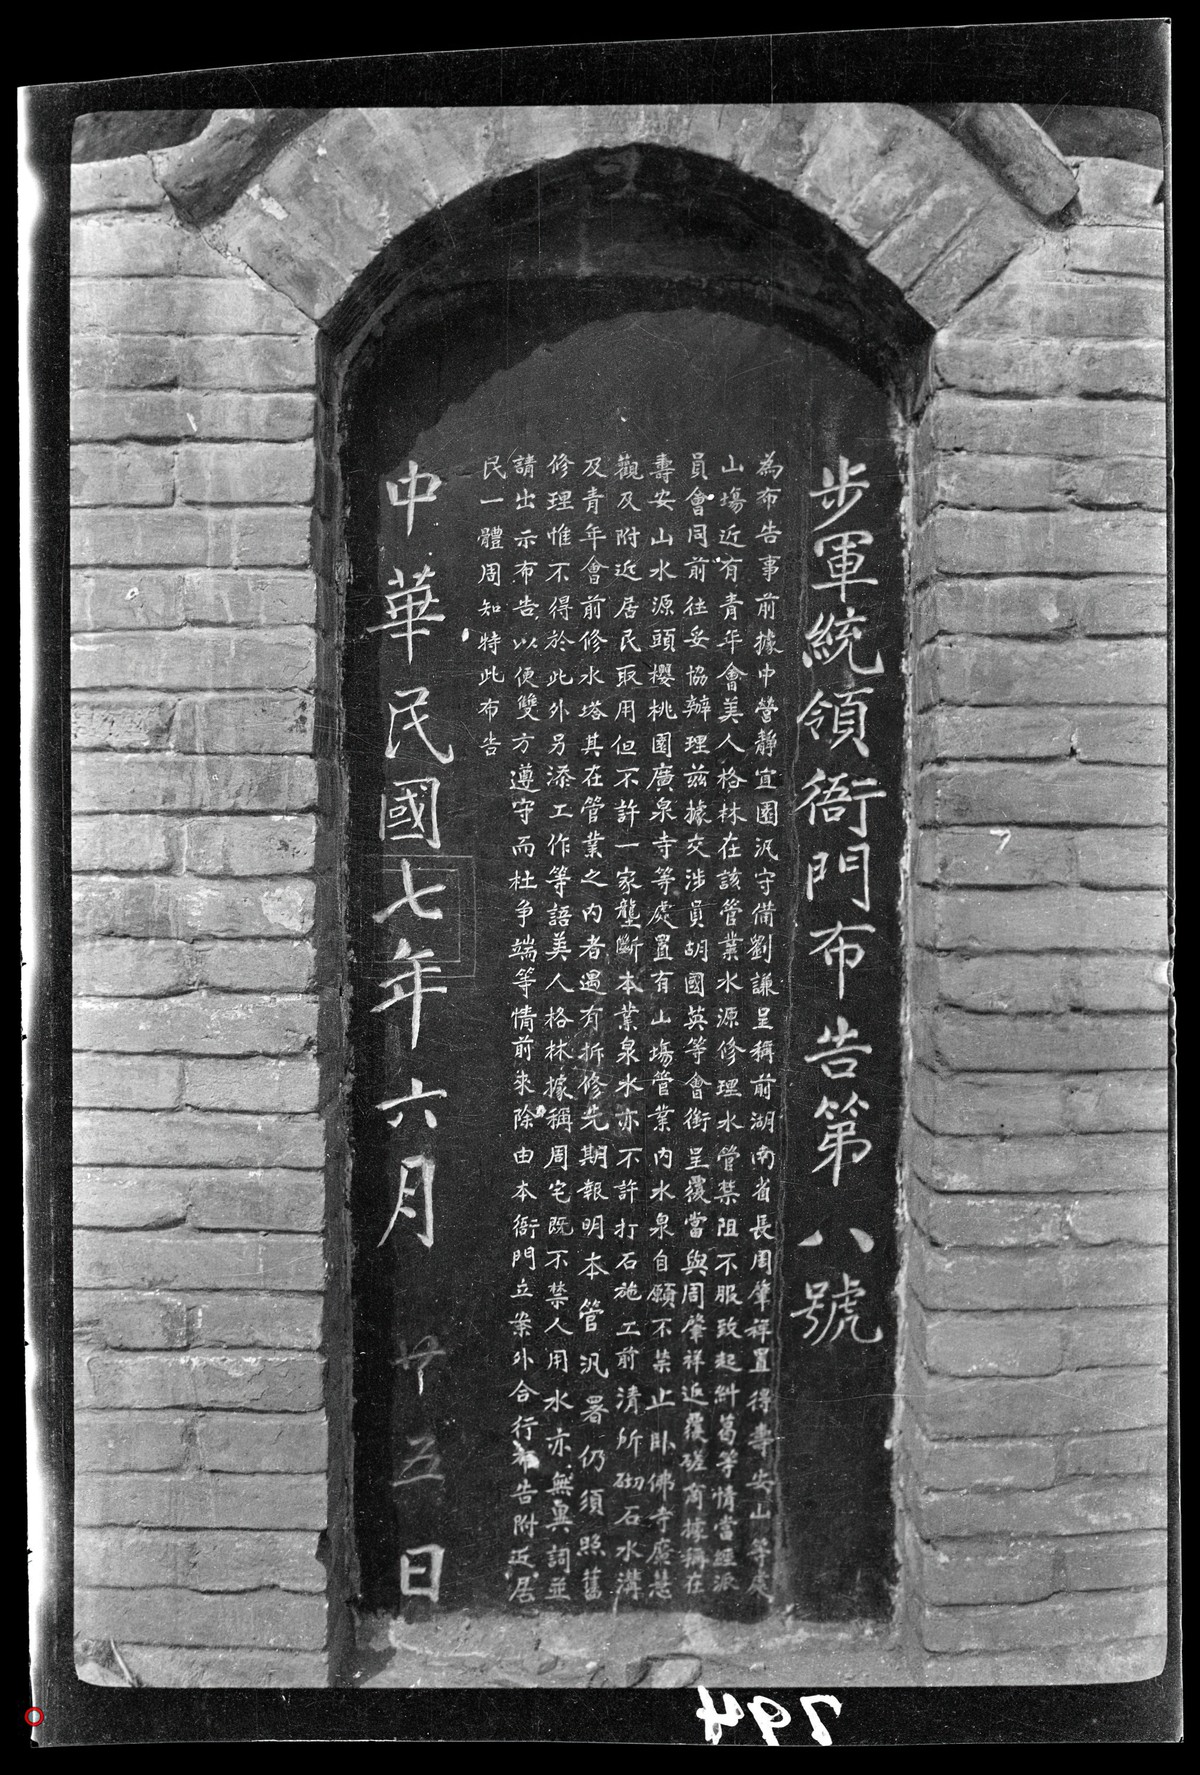 步軍統領衙門布告第八號
為布告事前據中營靜宜園汛守備劉謙呈稱前湖南省長周肇祥置得壽安山等處
山塲近有青年會美人格林在該管業水源修理水管禁阻不服致起糾葛等情當經派
員會同前往妥協辦理茲據交涉員胡國英等會銜呈覆當與周肇祥返覆磋商據稱在
壽安山水源頭櫻桃園廣泉寺等處置有山塲管業內水泉自願不禁止臥佛寺廣慧
觀及附近居民取用但不許一家壟斷本業泉水亦不許打石施工前清所砌石水溝
及青年會前修水塔其在管業之內者遇有拆修先期報明本管汛署仍須照舊
修理惟不得於此外另添工作等語美人格林據稱周宅既不禁人用水亦無異詞並
請出示布告以便雙方遵守而杜爭端等情前來除由本衙門立案外合行布告附近居
民一體周知特此布告
中華民國七年六月廿五日
794